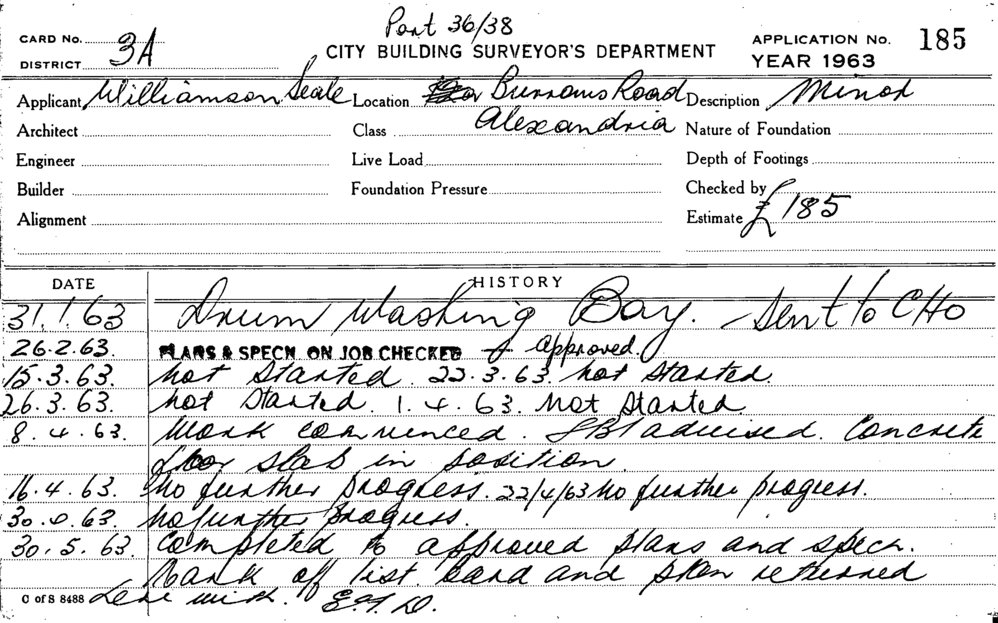 Part 36/38
CARD No. 3A CITY BUILDING SURVEYOR'S DEPARTMENT APPLICATION No. 185
DISTRICT YEAR 1963
Applicant Williamson Seale Location Burrows Road Description Minor
Architect Class Alexandria Nature of Foundation
Engineer Live Load Depth of Footings
Builder Foundation Pressure Checked by
Alignment Estimate £185
DATE HISTORY
31.1.63 Drum Washing Bay. Sent to CHO
26.2.63. PLANS & SPECN ON JOB CHECKED approved.
15.3.63. not started. 22.3.63. not started.
26.3.63. not started. 1.4.63. not started
8.4.63. Work commenced. advised. Concrete
floor slab in position.
16.4.63. no further progress. 22/4/63 no further progress.
30.4.63. no further progress.
30.5.63. Completed to approved plans and specn.
Mark off list. Card and plan returned
C of S 8488 with.